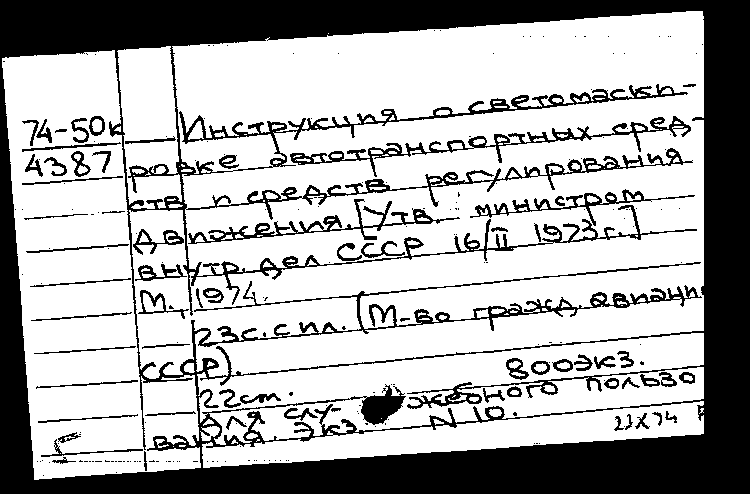 74-50к
4387
Инструкция о светомаски-
ровке автотранспортных сред-
ств и средств регулирования
движения. [Утв. министром
внутр. дел СССР 16/II 1973г.]
М., 1974.
23с. с ил. (М-во гражд. авиации
СССР).
22см. 800экз.
Для слу- жебного пользо
вания. Экз. N 10.